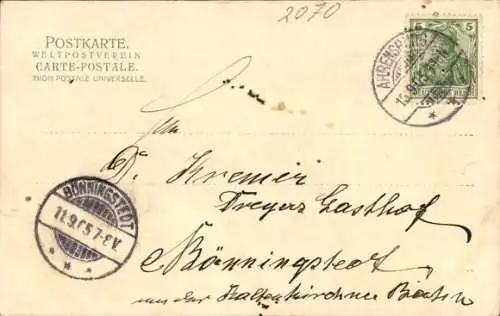 2070
POSTKARTE.
WELTPOSTVEREIN.
CARTE-POSTALE.
UNION POSTALE UNIVERSELLE.
5 5
DEUTSCHES REICH
BÖNNINGSTEDT
11.9.05.7-8V.
Kremer
Dreyers Gasthof
Bönningstedt
an der Kaltenkirchner Bahn